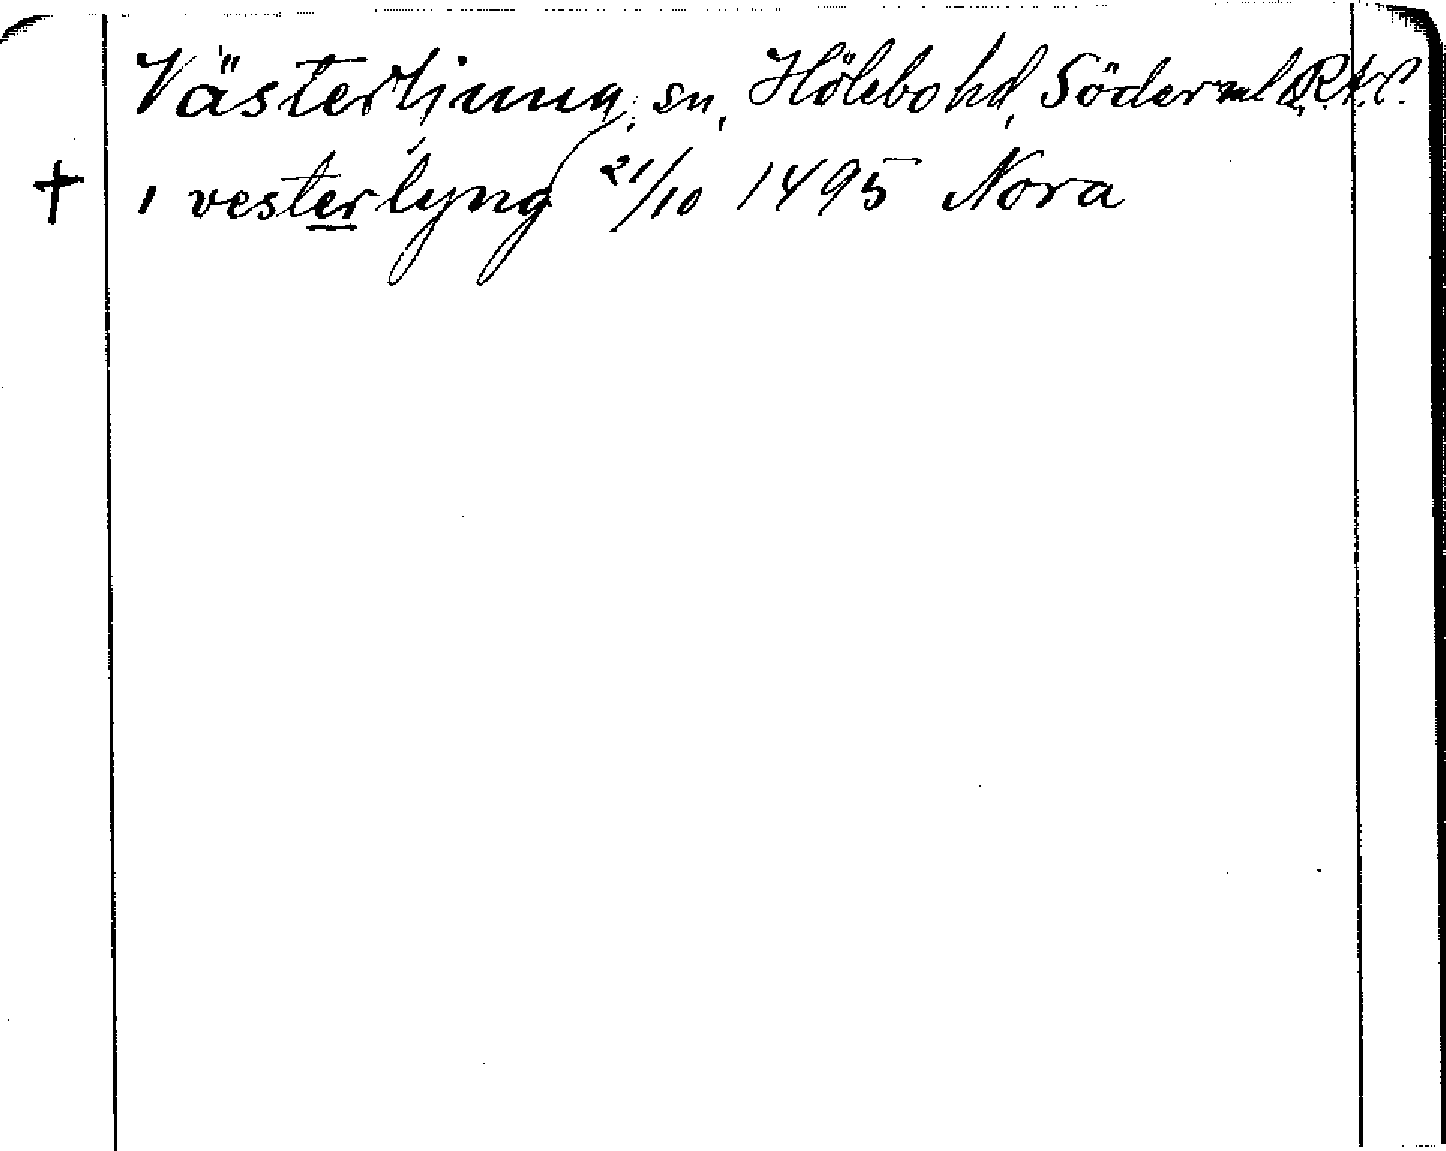 Västerljung, sn, Hölebo hd, Söderml. R.A.P.
† i vesterlyng 21/10 1495 Nora